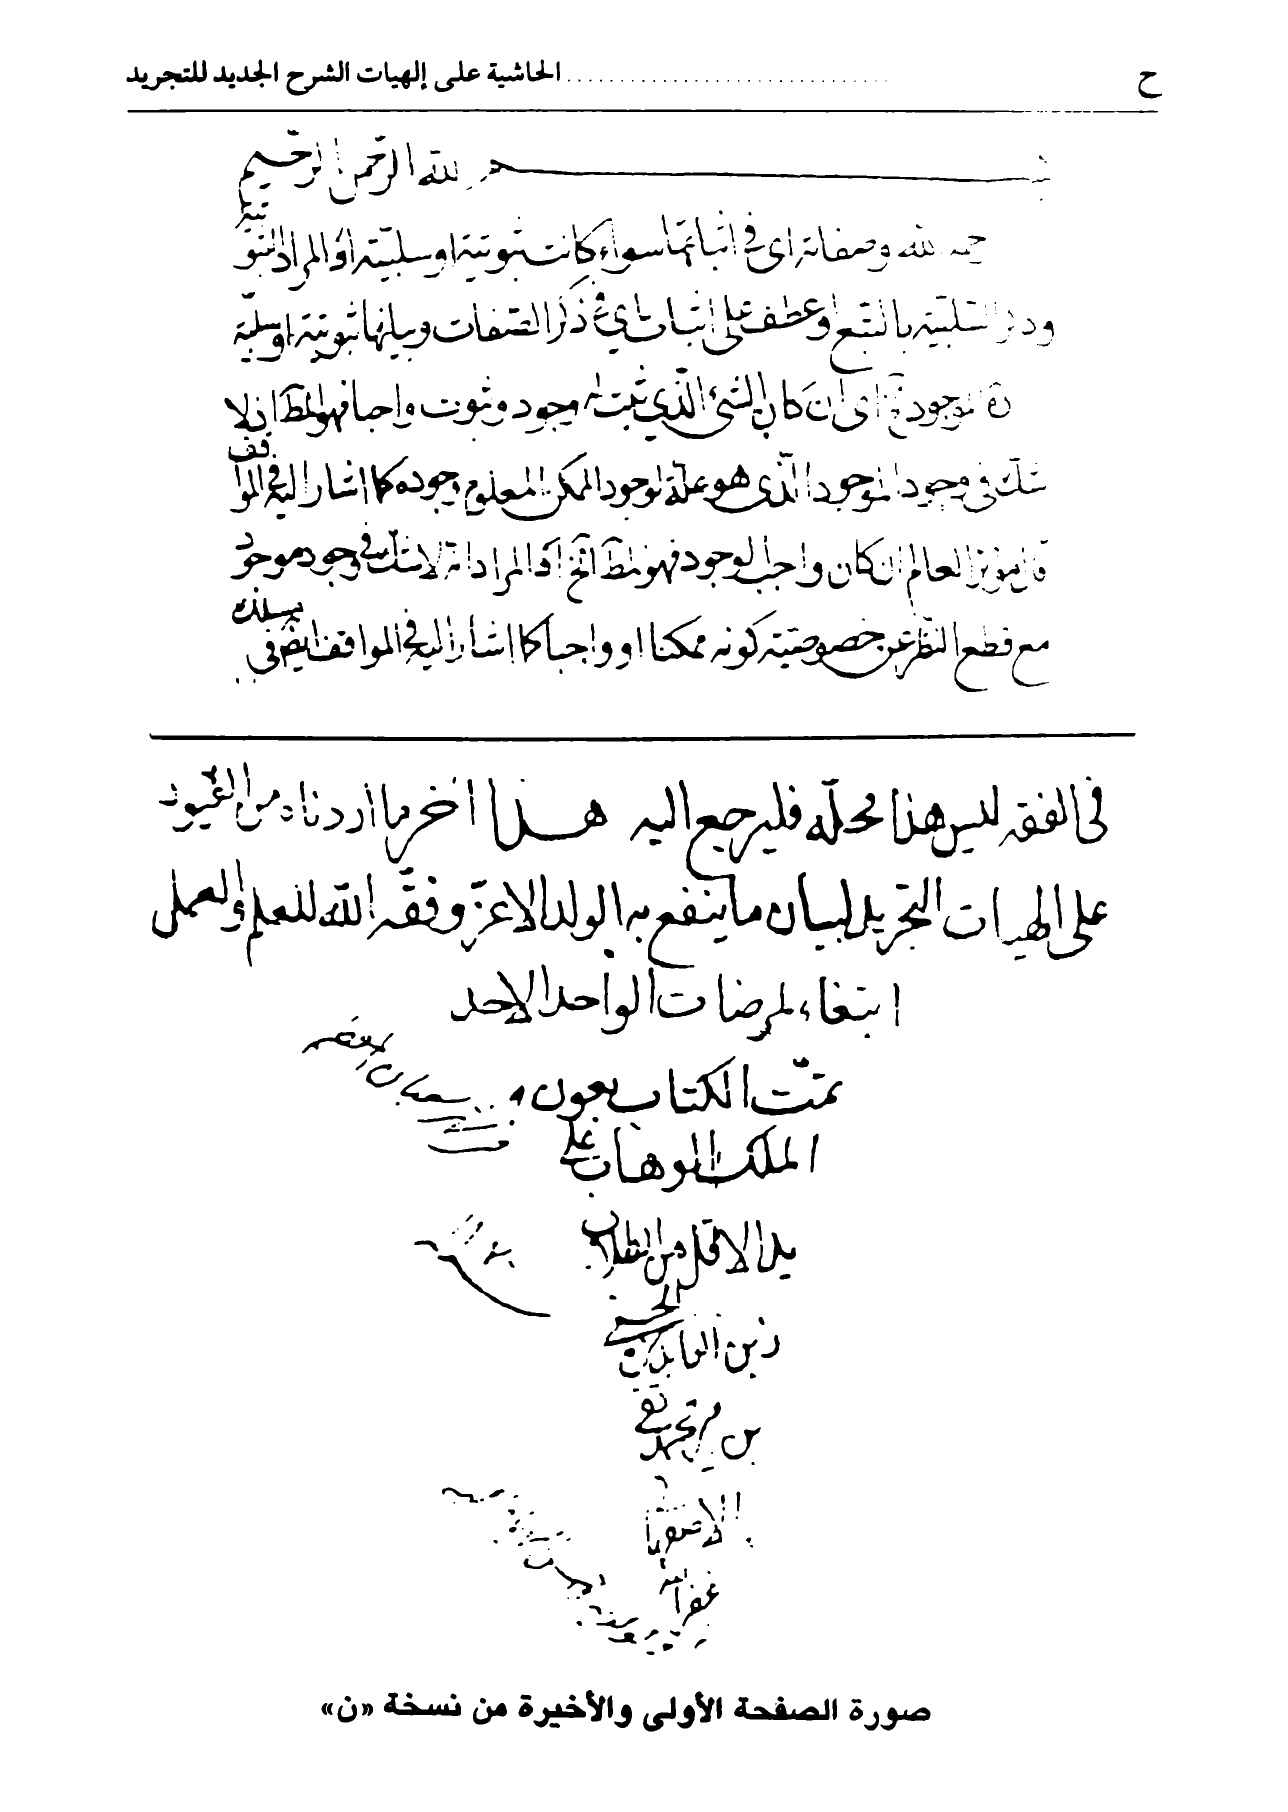 ح الحاشية على إلهيات الشرح الجديد للتجريد
الله الرحمن الرحيم
لله وصفاته اى فى اثباتها سواء كانت ثبوتية او سلبيّة اذ المراد الثبوتية
السّلبيّة بالتّبع او عطف على اثبات اي فى ذكر الصّفات وبيانها ثبوتية او سلبيّة
الموجود اى ان كان الشئ الّذي ثبت له وجود وثبوت واجبا فهو المط اذ لا
شك فى وجود الموجود الّذى هو علّة لوجود الممكن المعلوم وجوده كما اشار اليه فى المواقف
العالم ان كان واجب الوجود فهو المط الخ اذ المراد انّه لا شك فى وجود موجود
مع قطع النّظر عن خصوصيّة كونه ممكنا او واجبا كما اشار اليه فى المواقف ايض فى مسلك
فى الفقه ليس هذا محلّه فليرجع اليه هذا آخر ما اردناه من
على الهيات التجريد لبيان ما ينتفع به الولد الاعزّ وفّقه الله للعلم والعمل
ابتغاء لمرضات الواحد الاحد
تمّت الكتاب بعون
الملك الوهاب على
يد الاقل من الطلاب
زين العابدين الحسني
بن محمد تقي
غفر الله
صورة الصفحة الأولى والأخيرة من نسخة «ن»